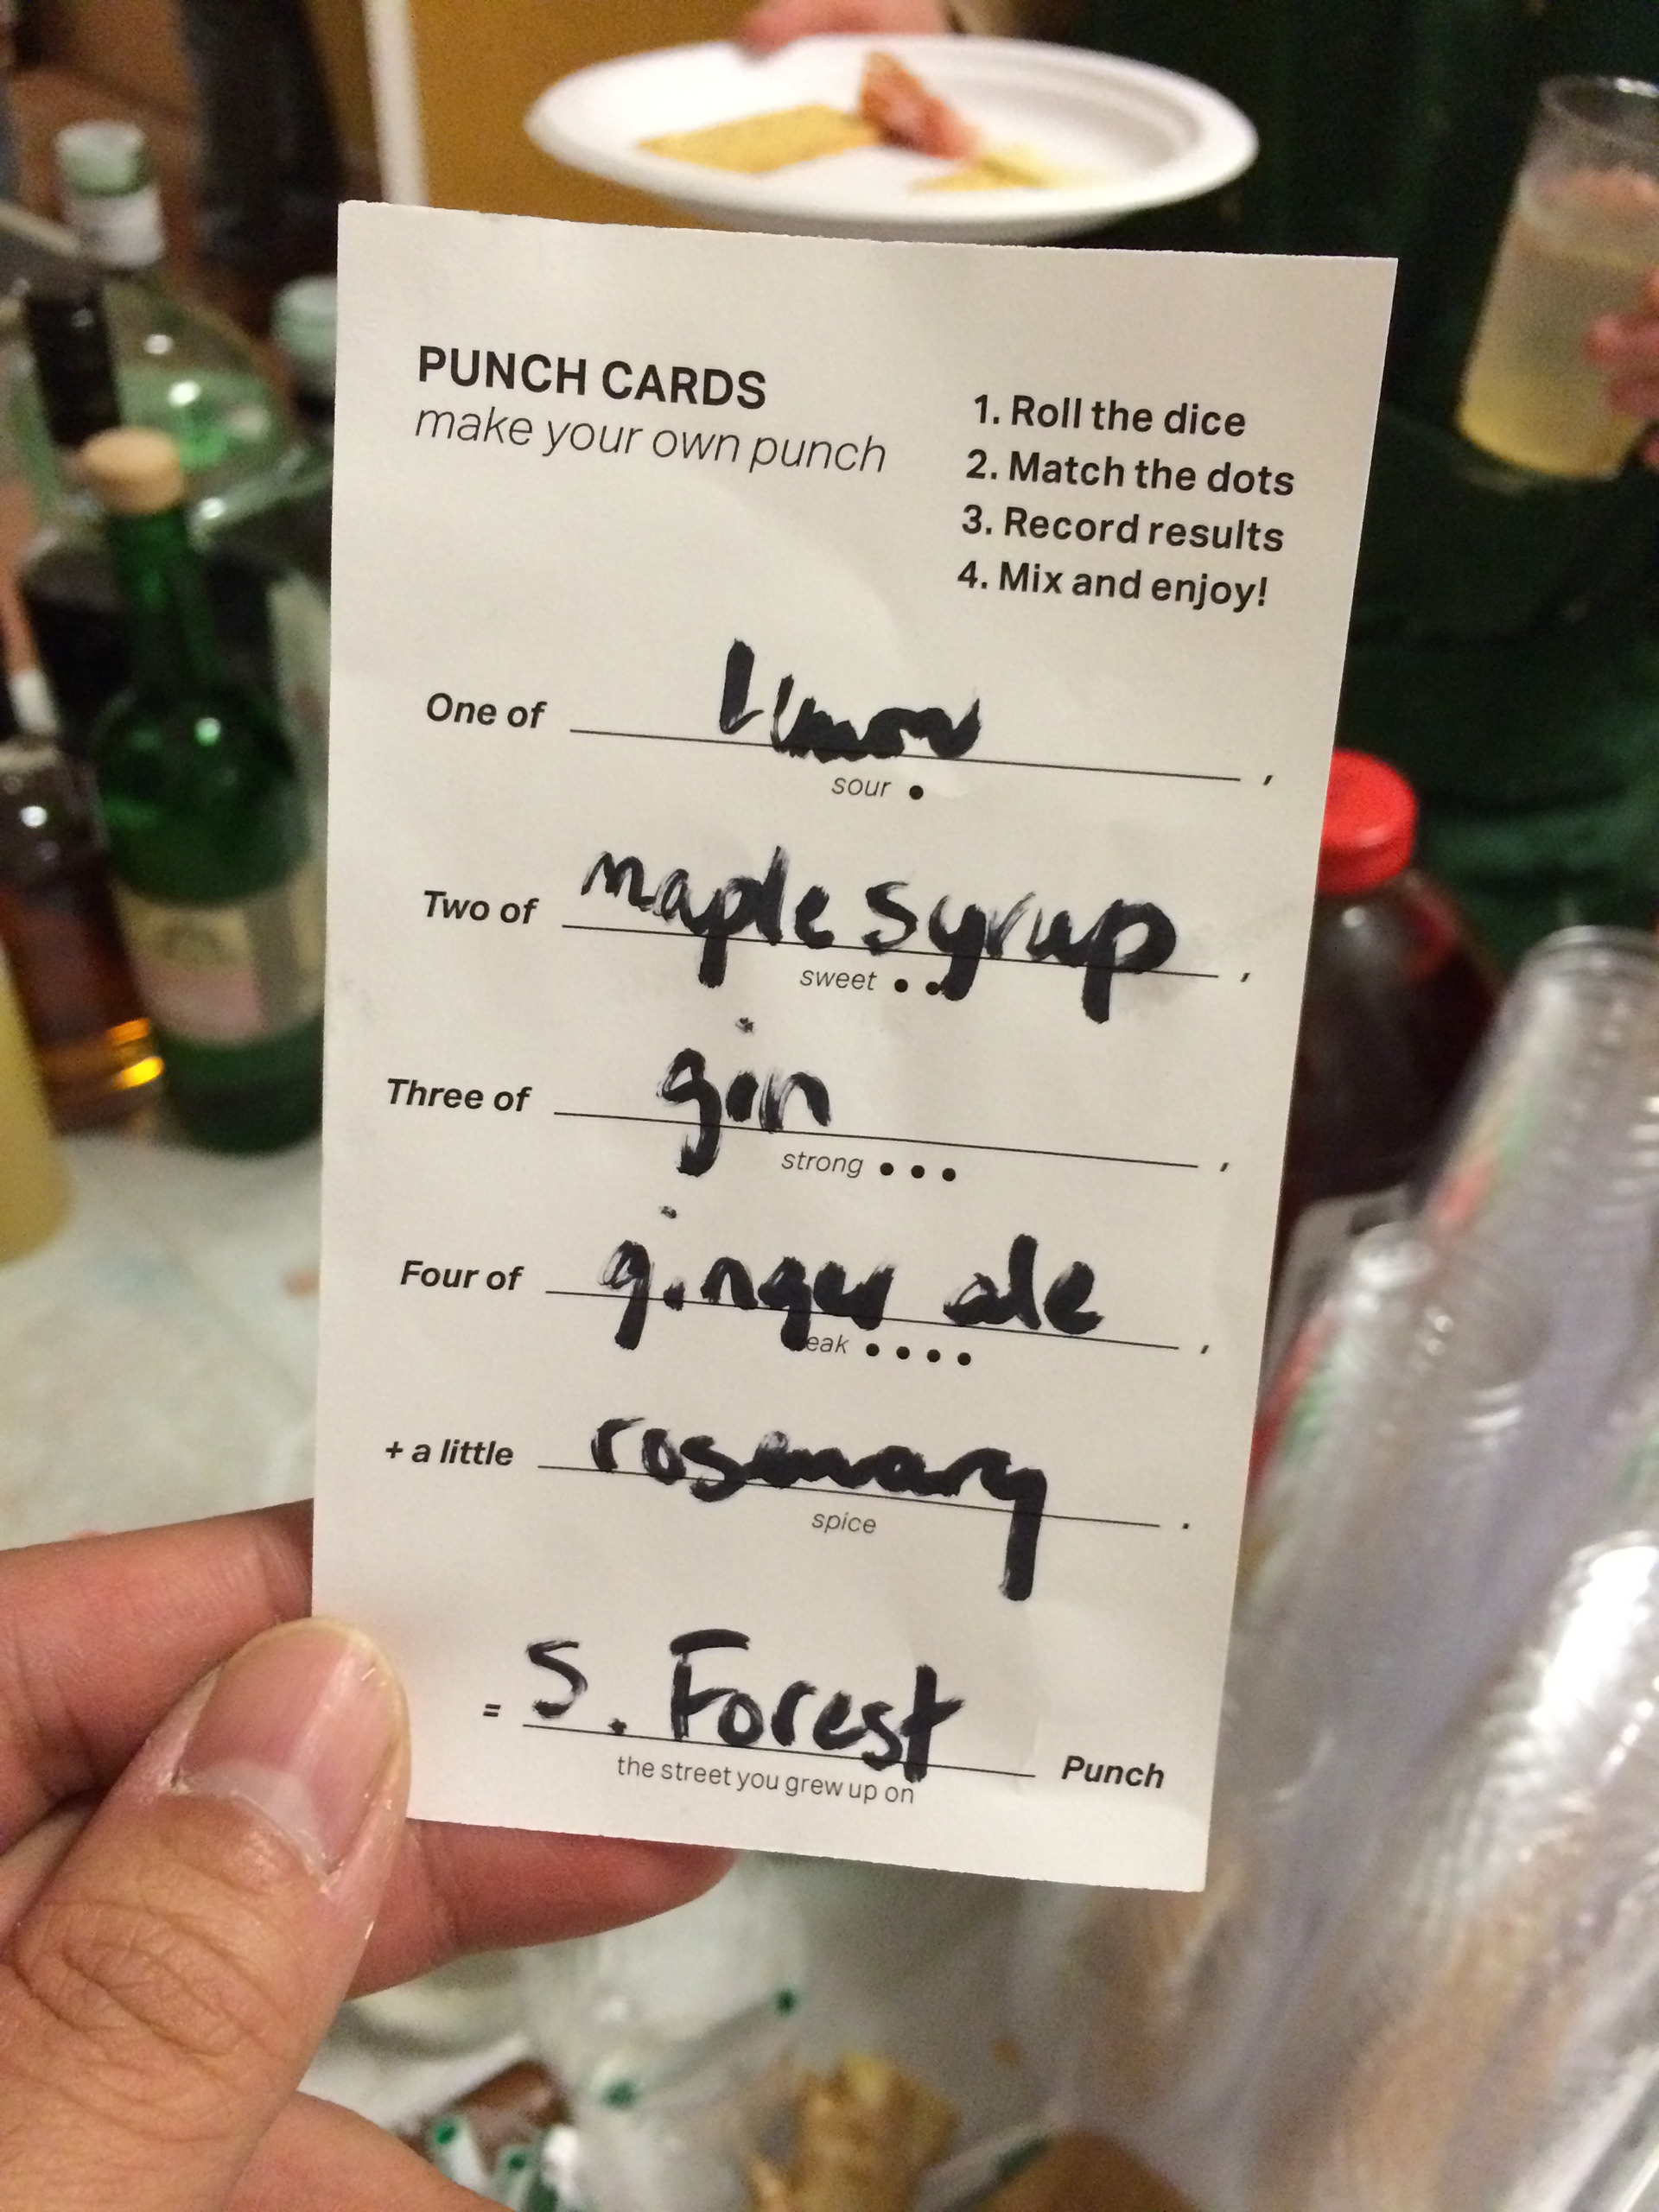 PUNCH CARDS
make your own punch
1. Roll the dice
2. Match the dots
3. Record results
4. Mix and enjoy!
One of lemon,
sour •
Two of maple syrup,
sweet • •
Three of gin,
strong • • •
Four of ginger ale,
eak • • • •
+ a little rosemary.
spice
= S. Forest Punch
the street you grew up on